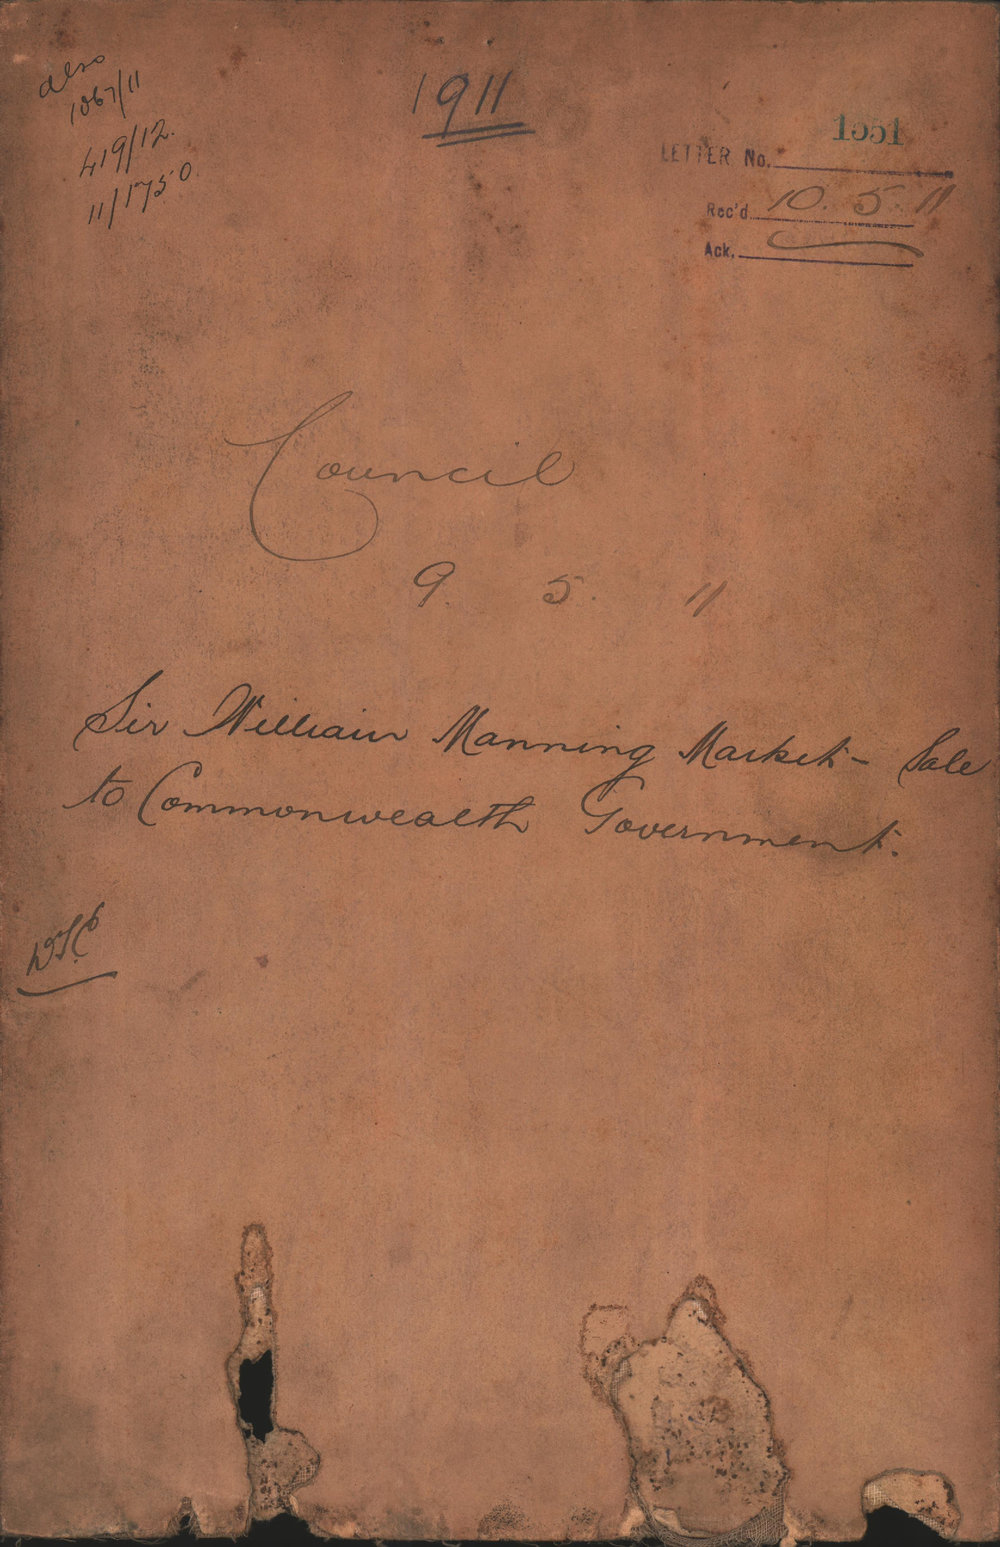 also
1067/11
419/12.
11/1750
1911
1551
LETTER No.
Rec'd 10. 5. 11
Ack.
Council
9. 5. 11
Sir William Manning Market - Sale
to Commonwealth Government.